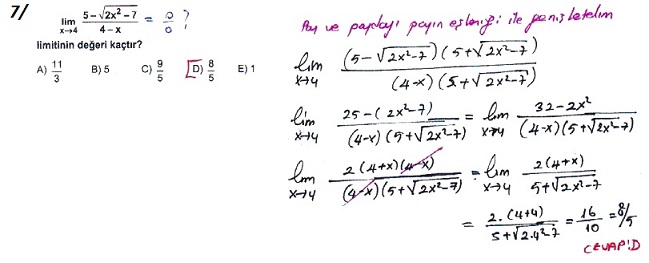 7/
lim x→4 (5-√(2x²-7))/(4-x) = 0/0 ?
limitinin değeri kaçtır?
A) 11/3 B) 5 C) 9/5 D) 8/5 E) 1
Pay ve paydayı payın eşleniği ile genişletelim
lim x→4 ((5-√(2x²-7))(5+√(2x²-7)))/((4-x)(5+√(2x²-7)))
lim x→4 (25-(2x²-7))/((4-x)(5+√(2x²-7))) = lim x→4 (32-2x²)/((4-x)(5+√(2x²-7)))
lim x→4 (2(4+x)(4-x))/((4-x)(5+√(2x²-7))) = lim x→4 (2(4+x))/(5+√(2x²-7))
= (2.(4+4))/(5+√(2.4²-7)) = 16/10 = 8/5
CEVAP:D